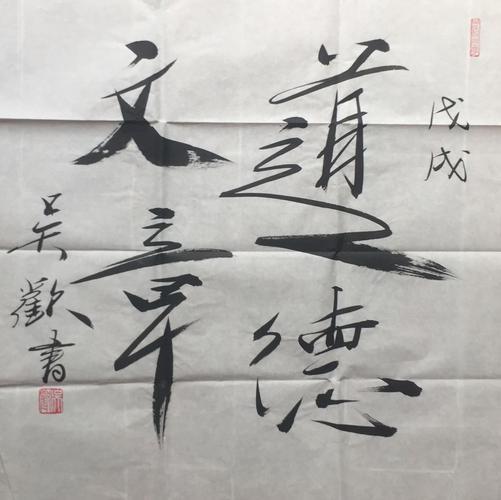 戊戌
道德
文章
吴欢書